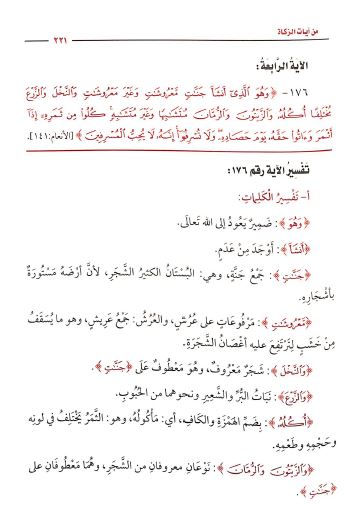 من آيات الزكاة
٢٢١
الآيَةُ الرَّابِعَةُ:
١٧٦- ﴿وَهُوَ الَّذِي أَنشَأَ جَنَّتٍ مَّعْرُوشَتٍ وَغَيْرَ مَعْرُوشَتٍ وَالنَّخْلَ وَالزَّرْعَ
مُخْتَلِفًا أُكُلُهُ وَالزَّيْتُونَ وَالرُّمَّانَ مُتَشَبِهًا وَغَيْرَ مُتَشَبِهٍ كُلُوا مِن ثَمَرِهِ إِذَا
أَثْمَرَ وَءَاتُوا حَقَّهُ يَوْمَ حَصَادِهِ وَلَا تُسْرِفُوا إِنَّهُ لَا يُحِبُّ الْمُسْرِفِينَ﴾ [الأنعام: ١٤١].
تَفْسِيرُ الآيَةِ رقم ١٧٦:
أ- تَفْسِيرُ الكَلِمَاتِ:
﴿وَهُوَ﴾: ضَمِيرٌ يَعُودُ إلى الله تَعَالَى.
﴿أَنشَأَ﴾: أَوْجَدَ مِنْ عَدَمٍ.
﴿جَنَّتٍ﴾: جَمْعُ جَنَّةٍ، وهي: البُسْتَانُ الكَثِيرُ الشَّجَرِ، لأَنَّ أَرْضَهُ مَسْتُورَةٌ
بأشْجَارِهِ.
﴿مَعْرُوشَتٍ﴾: مَرْفُوعَاتٍ على عُرُشٍ، والعُرُشُ: جَمْعُ عَرِيشٍ، وهو ما يُسَقَّفُ
مِنْ خَشَبٍ لِتَرْتَفِعَ عليه أَغْصَانُ الشَّجَرَةِ.
﴿وَالنَّخْلَ﴾: شَجَرٌ مَعْرُوفٌ، وهُوَ مَعْطُوفٌ عَلَى ﴿جَنَّتٍ﴾.
﴿وَالزَّرْعَ﴾: نَبَاتُ البُرِّ والشَّعِيرِ ونحوهما من الحُبُوبِ.
﴿أُكُلُهُ﴾: بِضَمِّ الهَمْزَةِ والكَافِ، أي: مَأْكُولُهُ، وهو: الثَّمَرُ يَخْتَلِفُ في لونِهِ
وحَجْمِهِ وطَعْمِهِ.
﴿وَالزَّيْتُونَ وَالرُّمَّانَ﴾: نَوْعَانِ معروفانِ من الشَّجَرِ، وهُمَا مَعْطُوفَانِ على
﴿جَنَّتٍ﴾.